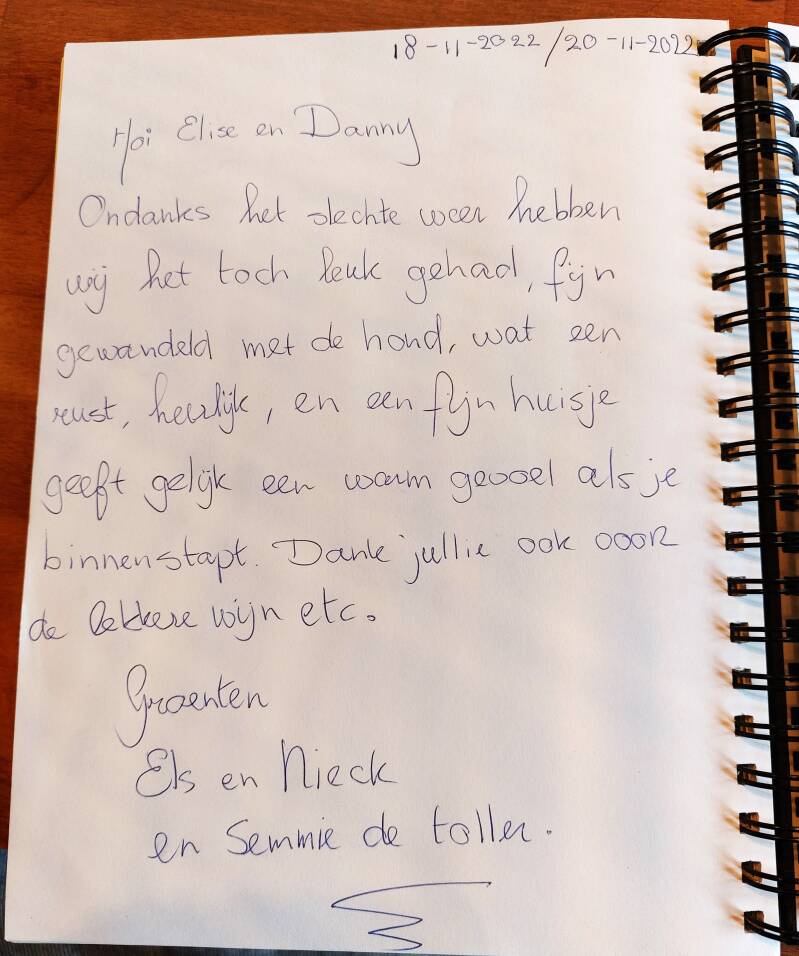 18-11-2022/20-11-2022
Hoi Elise en Danny
Ondanks het slechte weer hebben
wij het toch leuk gehad, fijn
gewandeld met de hond, wat een
rust, heerlijk, en een fijn huisje
geeft gelijk een warm gevoel als je
binnenstapt. Dank jullie ook voor
de lekkere wijn etc.
Groenten
Els en Nieck
en Semmie de toller.